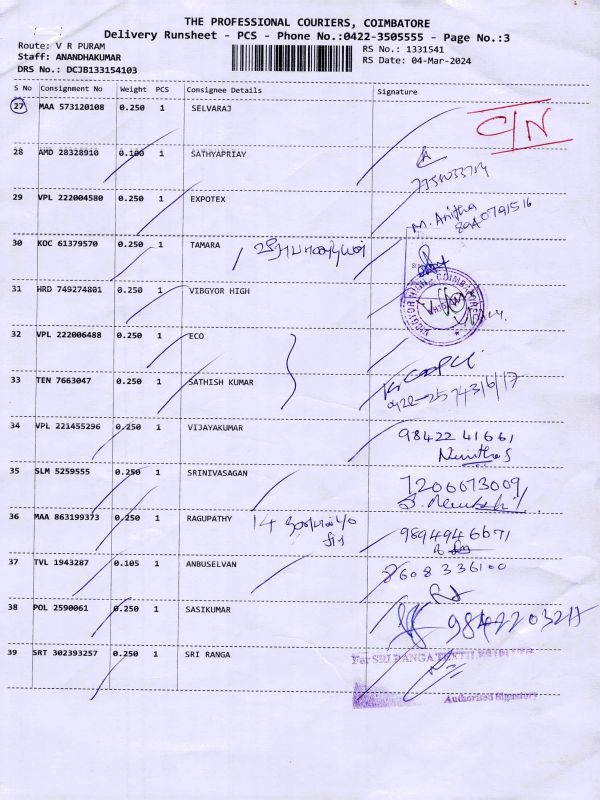 THE PROFESSIONAL COURIERS, COIMBATORE
Delivery Runsheet - PCS - Phone No.:0422-3505555 - Page No.:3
Route: V R PURAM
RS No.: 1331541
Staff: ANANDHAKUMAR
RS Date: 04-Mar-2024
DRS No.: DCJB133154103
S No Consignment No Weight PCS Consignee Details Signature
27 MAA 573120108 0.250 1 SELVARAJ C/N
28 AMD 28328910 0.100 1 SATHYAPRIAY
29 VPL 222004580 0.250 1 EXPOTEX M. Anitha
30 KOC 61379570 0.250 1 TAMARA
31 HRD 749274801 0.250 1 VIBGYOR HIGH VIBGYOR HIGH COIMBATORE
32 VPL 222006488 0.250 1 ECO
33 TEN 7663047 0.250 1 SATHISH KUMAR
34 VPL 221455296 0.250 1 VIJAYAKUMAR 98422 41661
35 SLM 5259555 0.250 1 SRINIVASAGAN 7200673009
36 MAA 863199373 0.250 1 RAGUPATHY 14 9894946671
37 TVL 1943287 0.105 1 ANBUSELVAN 8608336100
38 POL 2590061 0.250 1 SASIKUMAR
39 SRT 302393257 0.250 1 SRI RANGA
For SRI RANGA
Authorised Signatory